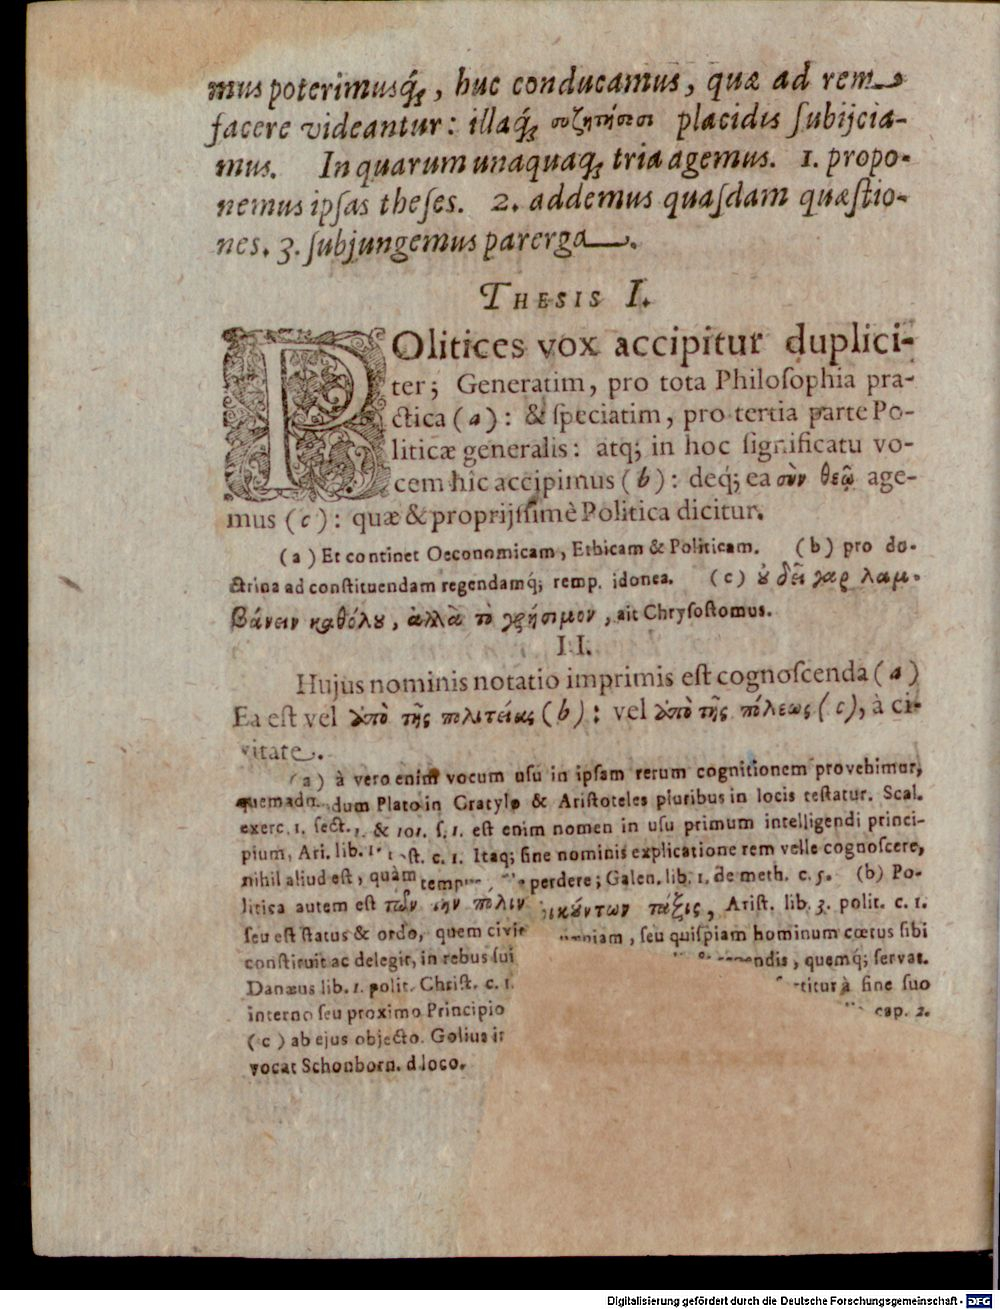 mus poterimusq́;, huc conducamus, quæ ad rem
facere videantur: illaq́; συζητήσει placidis ſubijcia-
mus. In quarum unaquaq; tria agemus. 1. propo-
nemus ipſas theſes. 2. addemus quaſdam quæſtio-
nes. 3. ſubjungemus parerga.
THESIS I.
POlitices vox accipitur duplici-
ter; Generatim, pro tota Philoſophia pra-
ctica (a): & ſpeciatim, pro tertia parte Po-
liticæ generalis: atq; in hoc ſignificatu vo-
cem hic accipimus (b): deq́; ea σὺν θεῷ age-
mus (c): quæ & proprijſſimè Politica dicitur.
(a) Et continet Oeconomicam, Ethicam & Politicam. (b) pro do-
ctrina ad conſtituendam regendamq́; remp. idonea. (c) ȣ δεῖ γαρ λαμ-
βάνειν καθόλȣ, ἀλλὰ τὸ χρήσιμον, ait Chryſoſtomus.
II.
Hujus nominis notatio imprimis eſt cognoſcenda (a)
Ea eſt vel ἀπὸ τῆς πολιτείας (b): vel ἀπὸ τῆς πόλεως (c), à ci-
vitate.
(a) à vero enim vocum uſu in ipſam rerum cognitionem provehimur,
quemadmodum Plato in Cratylo & Ariſtoteles pluribus in locis teſtatur. Scal.
exerc. 1. ſect. 1. & 101. ſ. 1. eſt enim nomen in uſu primum intelligendi princi-
pium, Ari. lib. c. 1. Itaq; ſine nominis explicatione rem velle cognoſcere,
nihil aliud eſt, quàm perdere; Galen. lib. 1. de meth. c. 5. (b) Po-
litica autem eſt τῶν τὴν πόλιν τάξις, Ariſt. lib. 3. polit. c. 1.
ſeu eſt ſtatus & ordo, quem ſeu quiſpiam hominum cœtus ſibi
conſtituit ac delegit, in rebus ſui quemq́; ſervat.
Danæus lib. 1. polit. Chriſt. c. 1. à fine ſuo
interno ſeu proximo Principio cap. 2.
(c) ab ejus objecto. Golius
vocat Schonborn. d. loco.